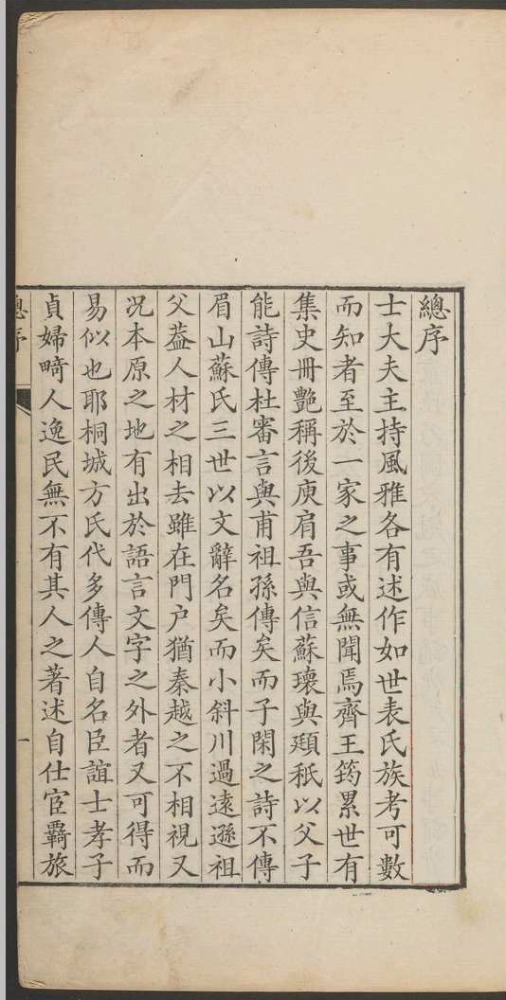 總序
士大夫主持風雅各有述作如世表氏族考可數
而知者至於一家之事或無聞焉齊王筠累世有
集史冊艶稱後庾肩吾與信蘇瓌與頲秖以父子
能詩傳杜審言與甫祖孫傳矣而子閑之詩不傳
眉山蘇氏三世以文辭名矣而小斜川過遠遜祖
父葢人材之相去雖在門户猶秦越之不相視又
况本原之地有出於語言文字之外者又可得而
易似也耶桐城方氏代多傳人自名臣誼士孝子
貞婦畸人逸民無不有其人之著述自仕宦覊旅
總序
一